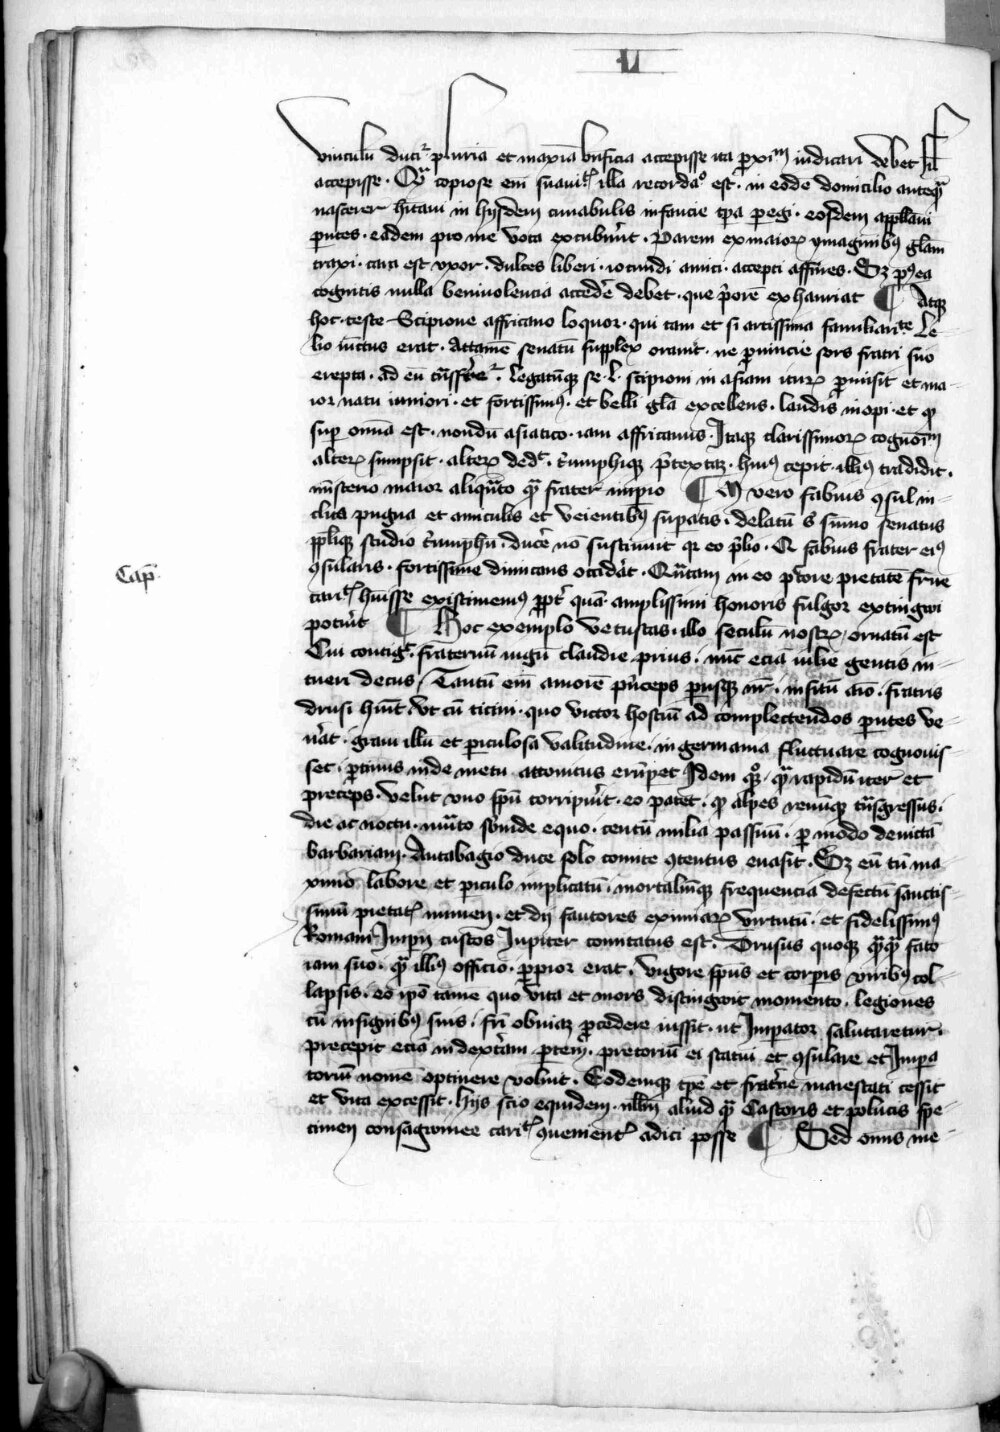 ·L·
vinculū ducit̉ pluria et maxīa bn̄ficia accepisse ita ꝓxīm iudicari debet sil̄
accepisse · Qm̄ copiose em̄ suauit̉ illa recorda͡o est · in eodē domicilio anteqͣ
nascerer hitaui in hijsdem cunabulis infancie tp̄a peregi · eosdem appellaui
pn̄tes · eadem pro me vota excubuer̄t · Parem ex maioꝝ ymaginibꝰ glam̄
traxi · cara est vxor · dulces liberi · iocundi amici · accepti affines · Sꝫ pꝰ ea
cognitis nulla beniuolencia accedē debet · que p̄orē exhauriat ¶ Atqꝫ
hoc · teste Scipione affricano loquor · qui tam et si artissima familiaritate Le-
lio iūctus erat · Attamē senatū supplex orauit · ne ꝓuincie sors fratri suo
erepta · ad eū trāsferret̉ · legatūqꝫ se · l · scipioni in asiam ituꝝ ꝓmisit et ma-
ior natu iuniori · et fortissimꝰ · et belli gl̄a excellens · laudis inopi · et qͩ
suꝑ om̄ia est · nondū asiatico · iam affricanus · Itaqꝫ clarissimoꝝ cognoīm
alteꝝ sumpsit · alteꝝ dedit · t̉umphiqꝫ p̄textaꝫ · huiꝰ cepit · illiꝰ tradidit ·
mīsterio maior aliqͣto qͣ frater imꝑio ¶ M vero fabius ꝯsul in-
clita pugna et amculis et veientibꝰ suꝑatis · delatū sͥ sūmo senatus
ppliqꝫ studio t̉umphū · ducē nō sustinuit qr eo p̄lio · Q fabius frater eiꝰ
ꝯsularis · fortissime dimicans occidāt · Qͣntam in eo pectore pietatē fr̄ne
carit̉ huisse existimemꝰ ꝓpt̉ quā amplissimi honoris fulgor extingwi
potuit ¶ Hoc exemplo vetustas · illo seculū nostꝝ ornatū est
Cui contigit · fraternū iugū claudie prius · nūc eciā iulie gentis in-
tueri decus / Tantū em̄ amorē p̄nceps parensqꝫ nr̄ · insitū aīo · fratris
drusi huit · vt cū ticini · quo victor hostiū ad complectendos pn̄tes ve-
nēat · graui illū et periculosa valitudine · in germania fluctuare cognouis-
set · protinus inde metu attonitus erūperet Idem qͦqꝫ · qͣ rapidū iter et
preceps · velut vno spū corripuīt · eo patet · qͩ alpes renūqꝫ trāsgressus ·
die ac noctu · mutato subīnde equo · centū milia passuū · per modo deuictā
barbariam · Antabagio duce solo comite ꝯtentus euasit · Sꝫ eū tū ma-
ximo labore et periculo implicatū · mortaliūqꝫ frequencia defectū sanctis-
simū pietatis numen · et dij fautores eximiaꝝ virtutū · et fidelissimꝰ
Romani Impij custos Jupiter comitatus est · Drusus quoqꝫ qͣqͣ fato
iam suo · qͣ illiꝰ officio · propior erat · vigore spūs et corpis viribꝰ col-
lapsis · eo ipō tamē quo vita et mors distingwit momento · legiones
cū insignibꝰ suis · fri obuiaꝫ procedere iussit · ut Imperator salutaretur ·
precepit eciā in dext̉am partem · pretoriū ei statui et ꝯsulare et Impera
toriū nomē optinere voluit · Eodemqꝫ tpē et frat̉ne maiestati cessit
et vita excessit · hijs scio equidem · nllm̄ aliud qͣ Castoris et polucis spe-
cimen consagwinee carit̉ ꝯuenient̉ adici posse ¶ Sed omīs me-
Cap̄